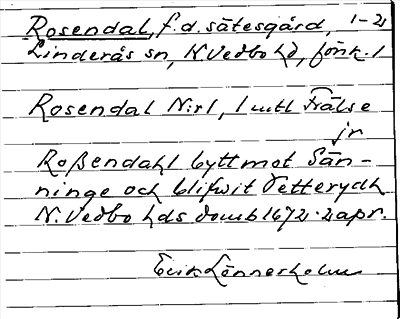 Rosendal, f.d. sätesgård, 1-21
Linderås sn, N Vedbo hd, Jönk. l
Rosendal N:r 1, 1 mtl Frälse
jr
Roßendahl bytt mot Sän-
ninge och blifwit Vetterydh
N. Vedbo hds domb 1672 2 apr.
Erik Lönnerholm